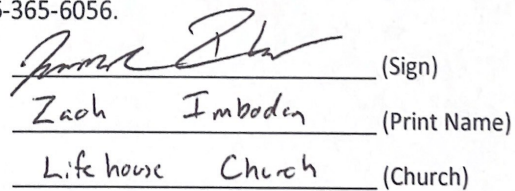 -365-6056.
(Sign)
Zach Imboden (Print Name)
Lifehouse Church (Church)